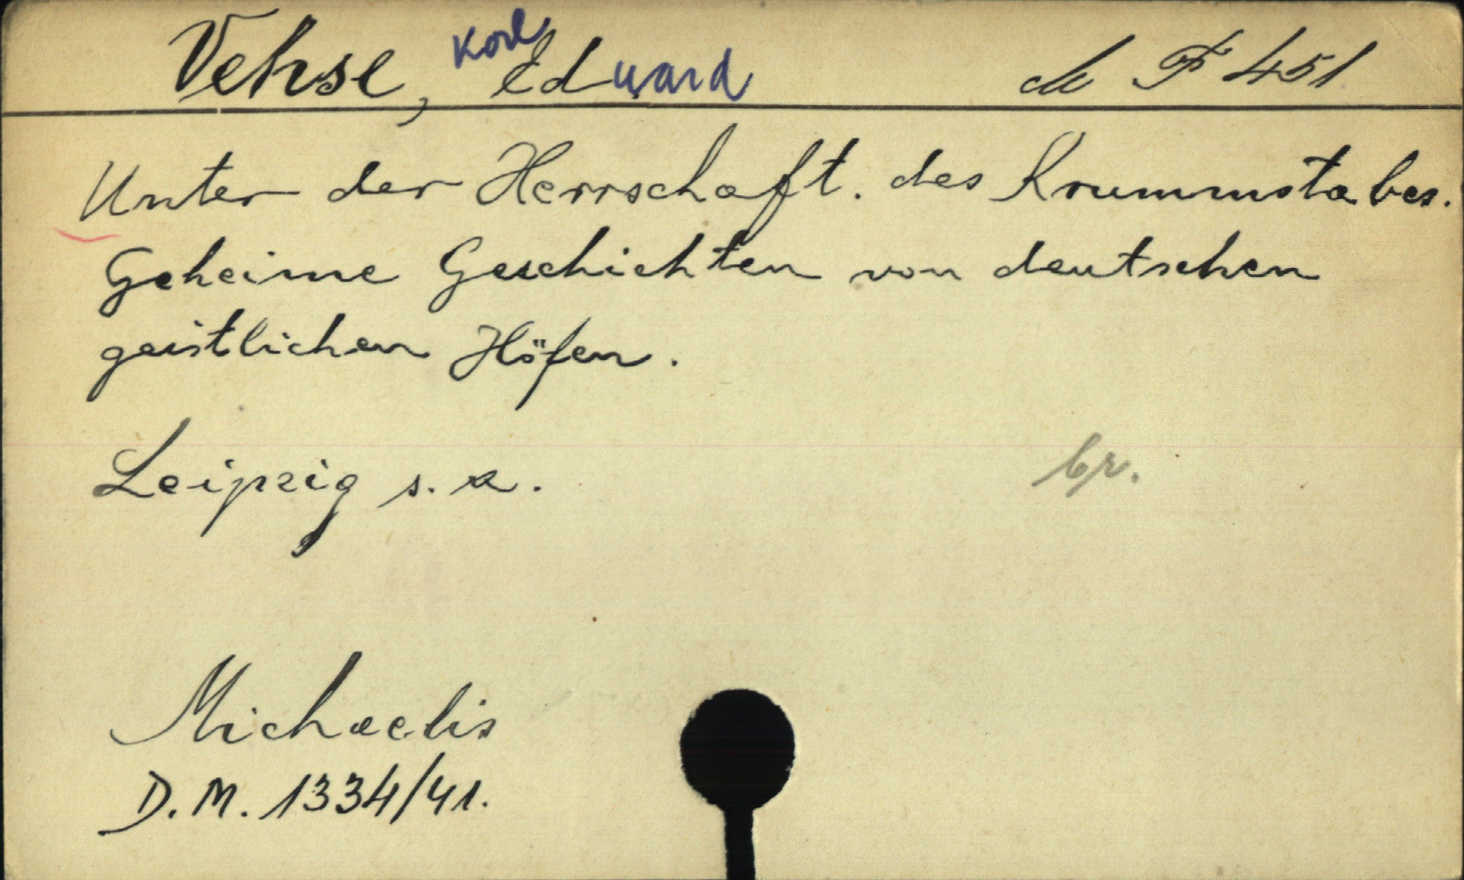 Vehse, Karl Eduard de F 451
Unter der Herrschaft. des Krummstabes.
Geheime Geschichten von deutschen
geistlichen Höfen.
Leipzig s. a. br.
Michaelis
D. M. 1334/41.